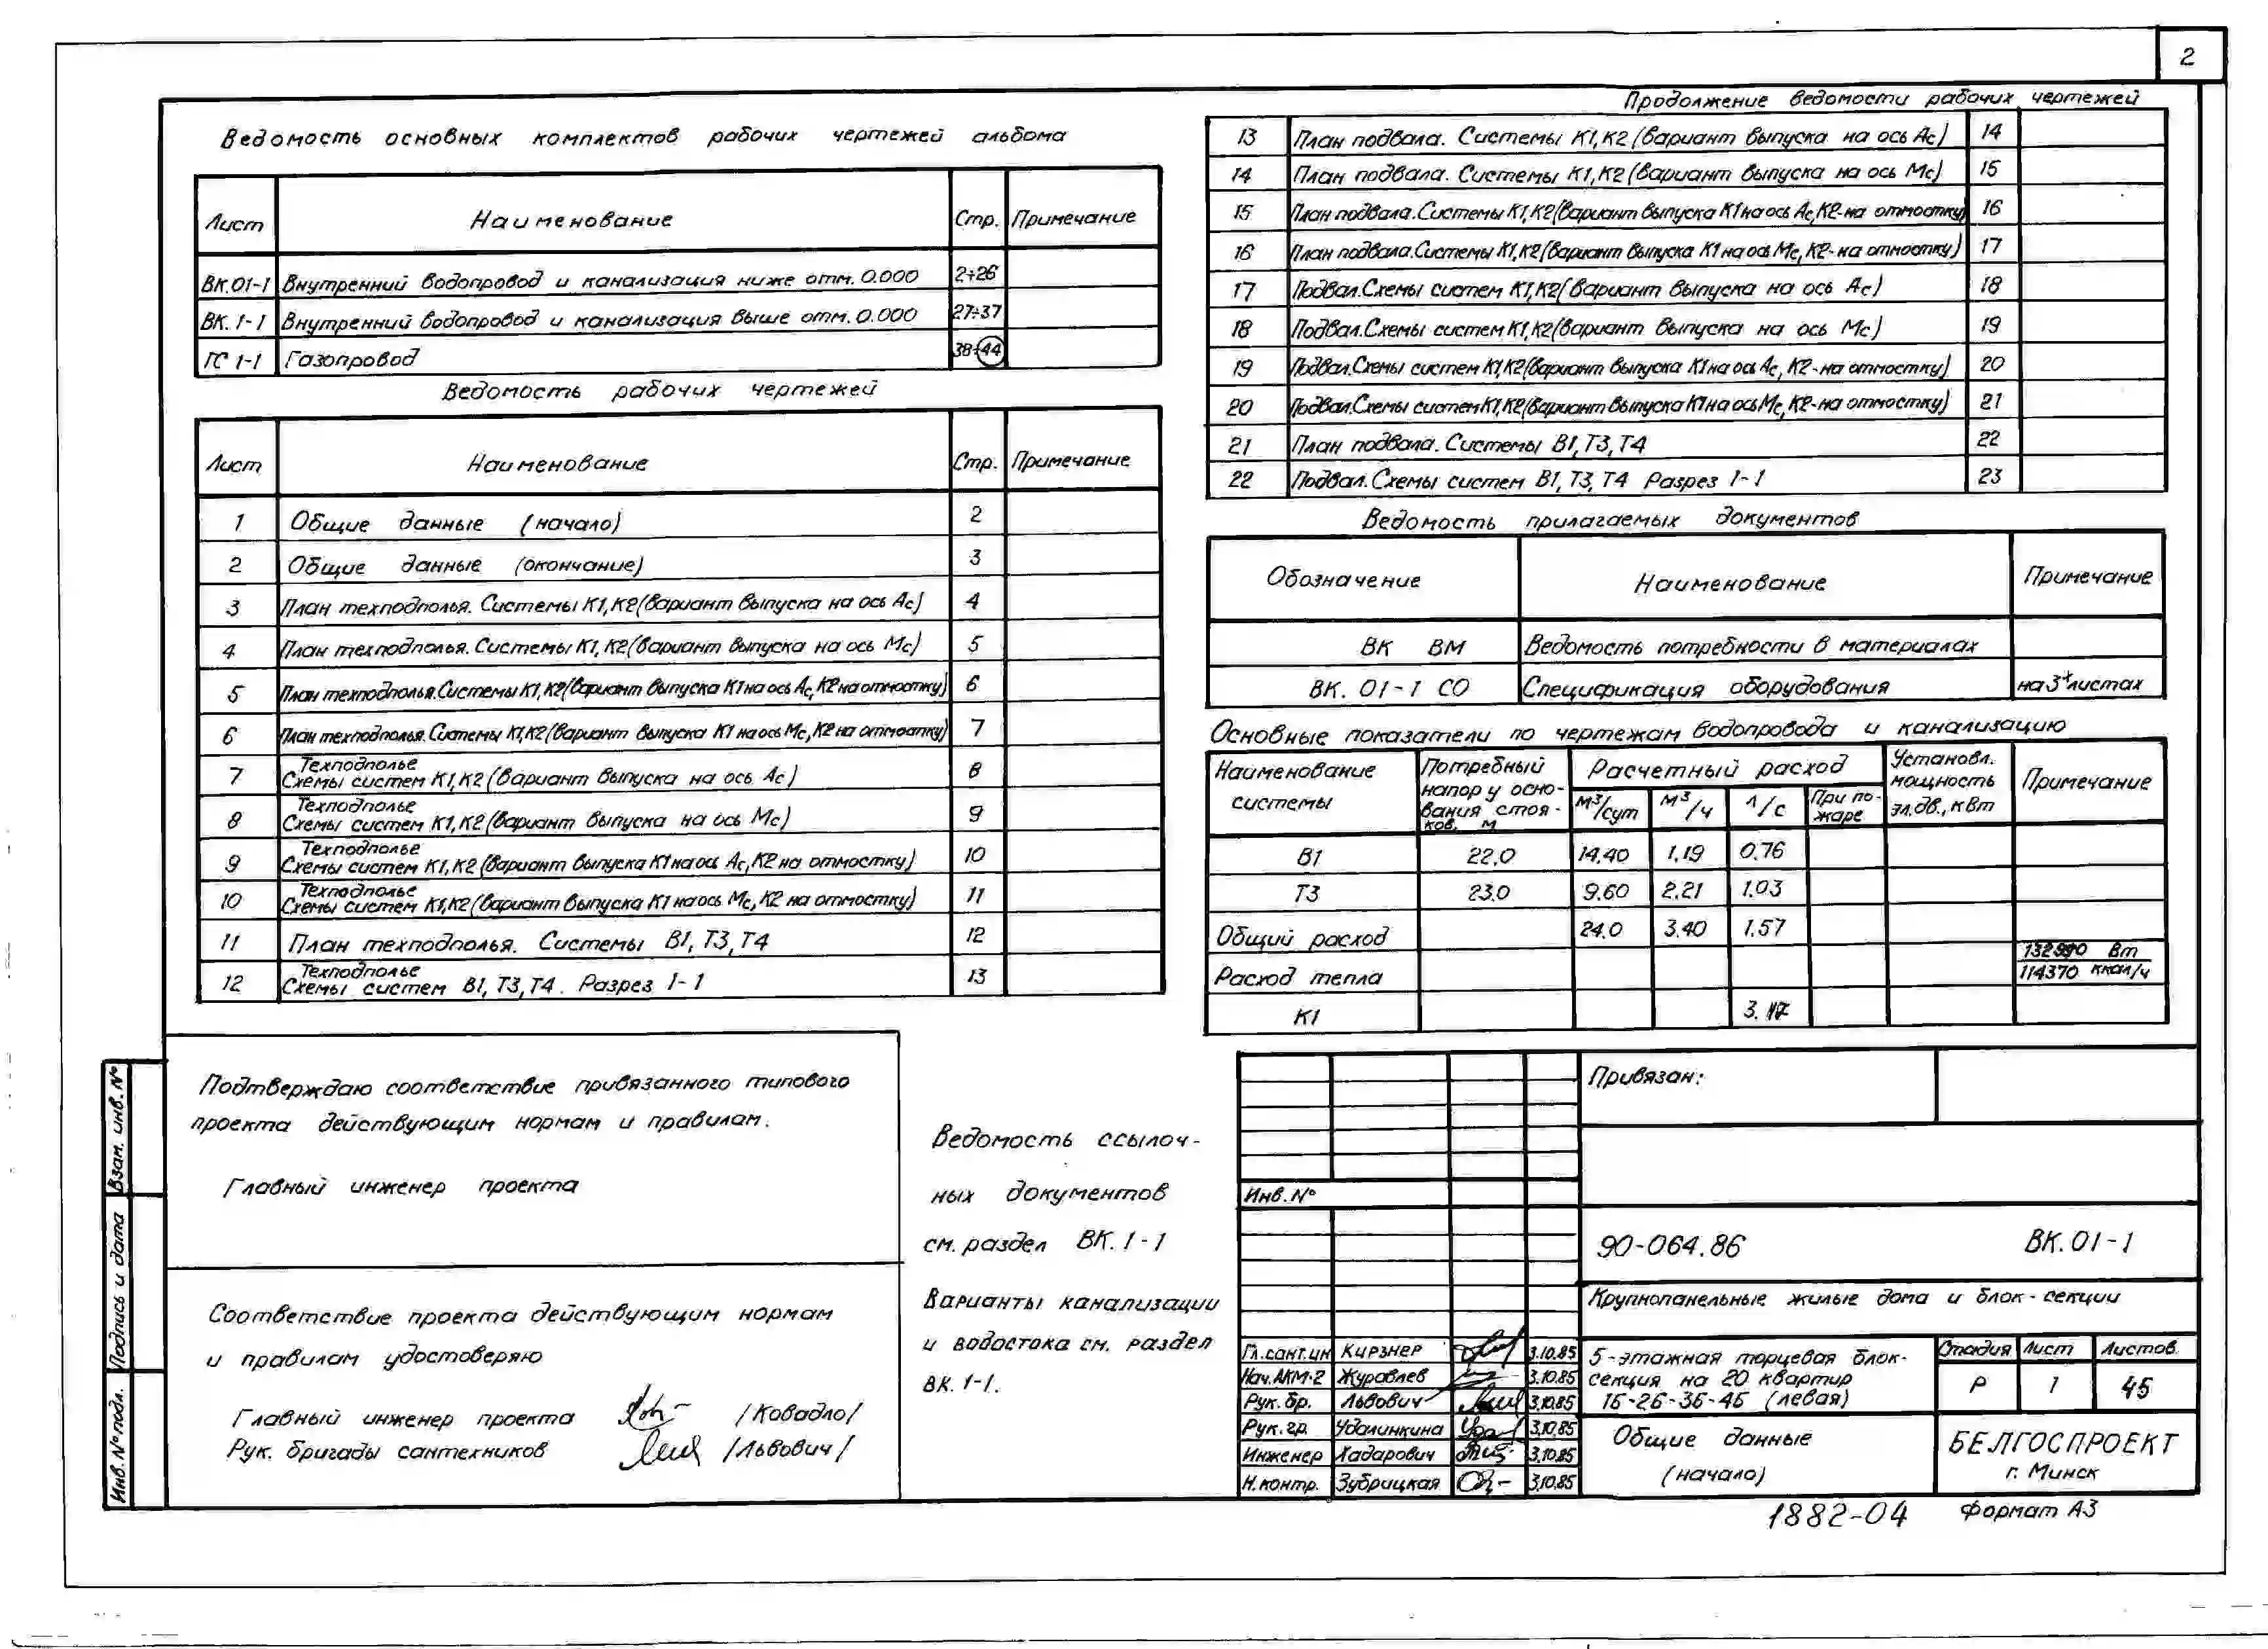 2
Ведомость основных комплектов рабочих чертежей альбома
Лист Наименование Стр. Примечание
ВК.01-1 Внутренний водопровод и канализация ниже отм. 0.000 2÷26
ВК. 1-1 Внутренний водопровод и канализация выше отм. 0.000 27÷37
ГС 1-1 Газопровод 38÷44
Ведомость рабочих чертежей
Лист Наименование Стр. Примечание
1 Общие данные (начало) 2
2 Общие данные (окончание) 3
3 План техподполья. Системы К1, К2 (вариант выпуска на ось Ас) 4
4 План техподполья. Системы К1, К2 (вариант выпуска на ось Мс) 5
5 План техподполья. Системы К1, К2 (вариант выпуска К1 на ось Ас, К2 на отмостку) 6
6 План техподполья. Системы К1, К2 (вариант выпуска К1 на ось Мс, К2 на отмостку) 7
Техподполье
7 Схемы систем К1, К2 (вариант выпуска на ось Ас) 8
Техподполье
8 Схемы систем К1, К2 (вариант выпуска на ось Мс) 9
Техподполье
9 Схемы систем К1, К2 (вариант выпуска К1 на ось Ас, К2 на отмостку) 10
Техподполье
10 Схемы систем К1, К2 (вариант выпуска К1 на ось Мс, К2 на отмостку) 11
11 План техподполья. Системы В1, Т3, Т4 12
Техподполье
12 Схемы систем В1, Т3, Т4. Разрез 1-1 13
Продолжение ведомости рабочих чертежей
13 План подвала. Системы К1, К2 (вариант выпуска на ось Ас) 14
14 План подвала. Системы К1, К2 (вариант выпуска на ось Мс) 15
15 План подвала. Системы К1, К2 (вариант выпуска К1 на ось Ас, К2-на отмостку) 16
16 План подвала. Системы К1, К2 (вариант выпуска К1 на ось Мс, К2-на отмостку) 17
17 Подвал. Схемы систем К1, К2 (вариант выпуска на ось Ас) 18
18 Подвал. Схемы систем К1, К2 (вариант выпуска на ось Мс) 19
19 Подвал. Схемы систем К1, К2 (вариант выпуска К1 на ось Ас, К2-на отмостку) 20
20 Подвал. Схемы систем К1, К2 (вариант выпуска К1 на ось Мс, К2-на отмостку) 21
21 План подвала. Системы В1, Т3, Т4 22
22 Подвал. Схемы систем В1, Т3, Т4 Разрез 1-1 23
Ведомость прилагаемых документов
Обозначение Наименование Примечание
ВК ВМ Ведомость потребности в материалах
ВК. 01-1 СО Спецификация оборудования на 3х листах
Основные показатели по чертежам водопровода и канализацию
Наименование системы
Потребный напор у осно-
вания стоя-
ков, м
Расчетный расход
м³/сут м³/ч л/с При по-
жаре
Установл.
мощность
эл.дв., кВт
Примечание
В1 22.0 14.40 1.19 0.76
Т3 23.0 9.60 2.21 1.03
Общий расход 24.0 3.40 1.57
Расход тепла Вт
114370 ккал/ч
К1 3.
Подтверждаю соответствие привязанного типового
проекта действующим нормам и правилам.
Главный инженер проекта
Соответствие проекта действующим нормам
и правилам удостоверяю
Главный инженер проекта /Ковадло/
Рук. бригады сантехников /Львович/
Ведомость ссылоч-
ных документов
см. раздел ВК. 1-1
Варианты канализации
и водостока см. раздел
ВК. 1-1.
Взам. инв. №
Подпись и дата
Инв. № подл.
Привязан:
Инв. №
90-064.86 ВК. 01-1
Крупнопанельные жилые дома и блок-секции
Гл.сант.ин Кирзнер 3.10.85
Нач.АКМ-2 Журавлев 3.10.85
Рук. бр. Львович 3.10.85
Рук. гр. Удалинкина 3.10.85
Инженер Хадарович 3.10.85
Н. контр. Зубрицкая 3.10.85
5-этажная торцевая блок-
секция на 20 квартир
1Б-2Б-3Б-4Б (левая)
Стадия Лист Листов
Р 1 45
Общие данные
(начало)
БЕЛГОСПРОЕКТ
г. Минск
1882-04
Формат А3